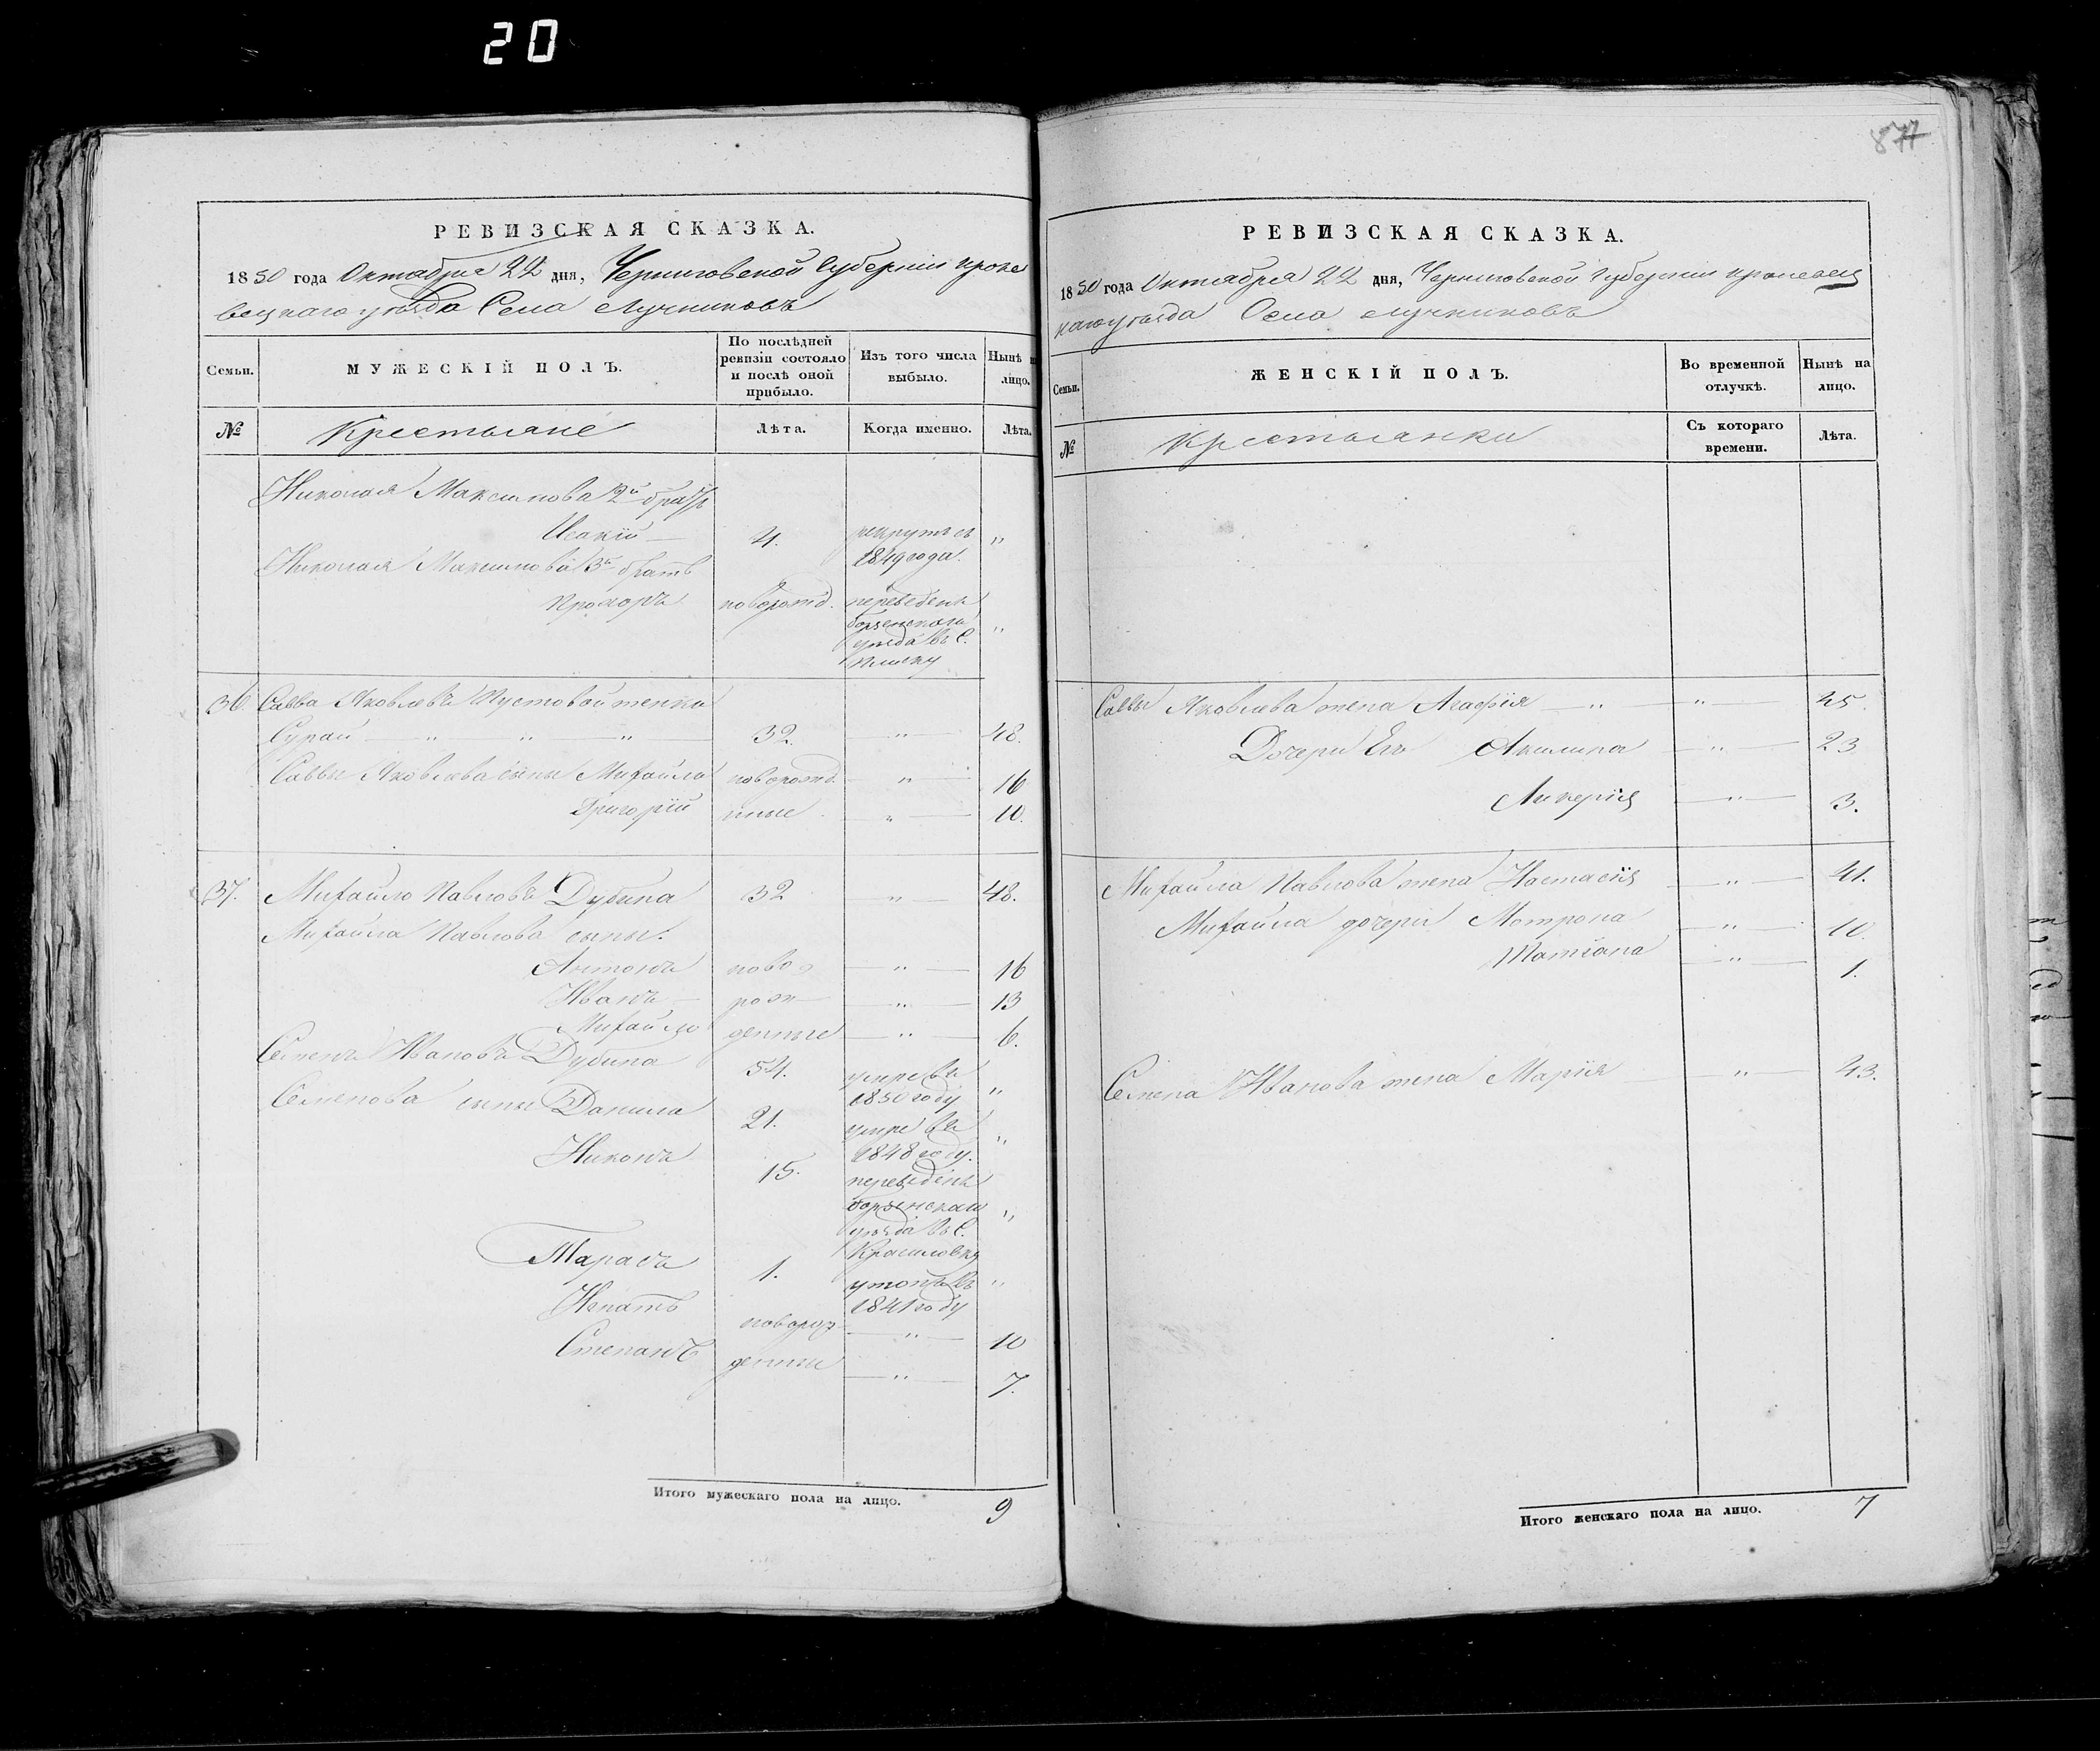 20
877
РЕВИЗСКАЯ СКАЗКА.
1850 года Октября 22 дня, Черниговской Губернии Кроле
вецкаго уѣзда Села Лучниковъ
Семьи.
МУЖЕСКІЙ ПОЛЪ.
По послѣдней ревизіи состояло и послѣ оной прибыло.
Изъ того числа выбыло.
Нынѣ на лицо.
№
Крестьяне
Лѣта.
Когда именно.
Лѣта.
Николая Максимова 2й братъ
Исакій 4. рекрутъ съ 1849 года. "
Николая Максимова 3й братъ
Прохоръ новорожд. переведенъ борзенскаго уѣзда въ С. Плиску "
36. Савва Яковлевъ Пустовойтенко
Сурай " " " 32. " 48.
Саввы Яковлева сыны Михайло новорожд. " 16
Григорій нные " 10.
37. Михайло Павловъ Дубина 32 " 48.
Михайла Павлова сыны.
Антонъ ново " 16
Иванъ рож " 13
Михайло денные " 6.
Семенъ Ивановъ Дубина 54. умре въ 1850 году "
Семенова сыны Данила 21. умре въ 1848 году. "
Никонъ 15. переведенъ борзенскаго уѣзда въ С. Красиловку "
Тарасъ 1. утопъ въ 1841 году "
Игнатъ новорож " 10
Степанъ денные " 7.
Итого мужескаго пола на лицо. 9
РЕВИЗСКАЯ СКАЗКА.
1850 года Октября 22 дня, Черниговской Губернии Кролевец
каго уѣзда Села Лучниковъ
Семьи.
ЖЕНСКІЙ ПОЛЪ.
Во временной отлучкѣ.
Нынѣ на лицо.
№
Крестьянки
Съ котораго времени.
Лѣта.
Саввы Яковлева жена Агафія " " 45.
Дочери Его Акилина " 23
Ликерія " 3.
Михайла Павлова жена Настасія " 41.
Михайла дочери Мотрона " 10.
Татіана " 1.
Семена Иванова жена Марія " 43.
Итого женскаго пола на лицо. 7